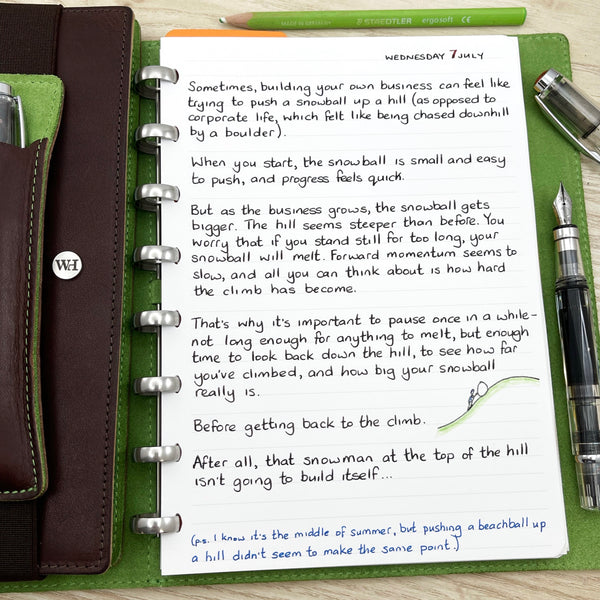 MADE IN GERMANY STAEDTLER ergosoft CE
WEDNESDAY 7 JULY
Sometimes, building your own business can feel like
trying to push a snowball up a hill (as opposed to
corporate life, which felt like being chased downhill
by a boulder).
When you start, the snowball is small and easy
to push, and progress feels quick.
But as the business grows, the snowball gets
bigger. The hill seems steeper than before. You
worry that if you stand still for too long, your
snowball will melt. Forward momentum seems to
slow, and all you can think about is how hard
the climb has become.
WH
That's why it's important to pause once in a while-
not long enough for anything to melt, but enough
time to look back down the hill, to see how far
you've climbed, and how big your snowball
really is.
Before getting back to the climb.
After all, that snowman at the top of the hill
isn't going to build itself...
(ps. I know it's the middle of summer, but pushing a beachball up
a hill didn't seem to make the same point.)